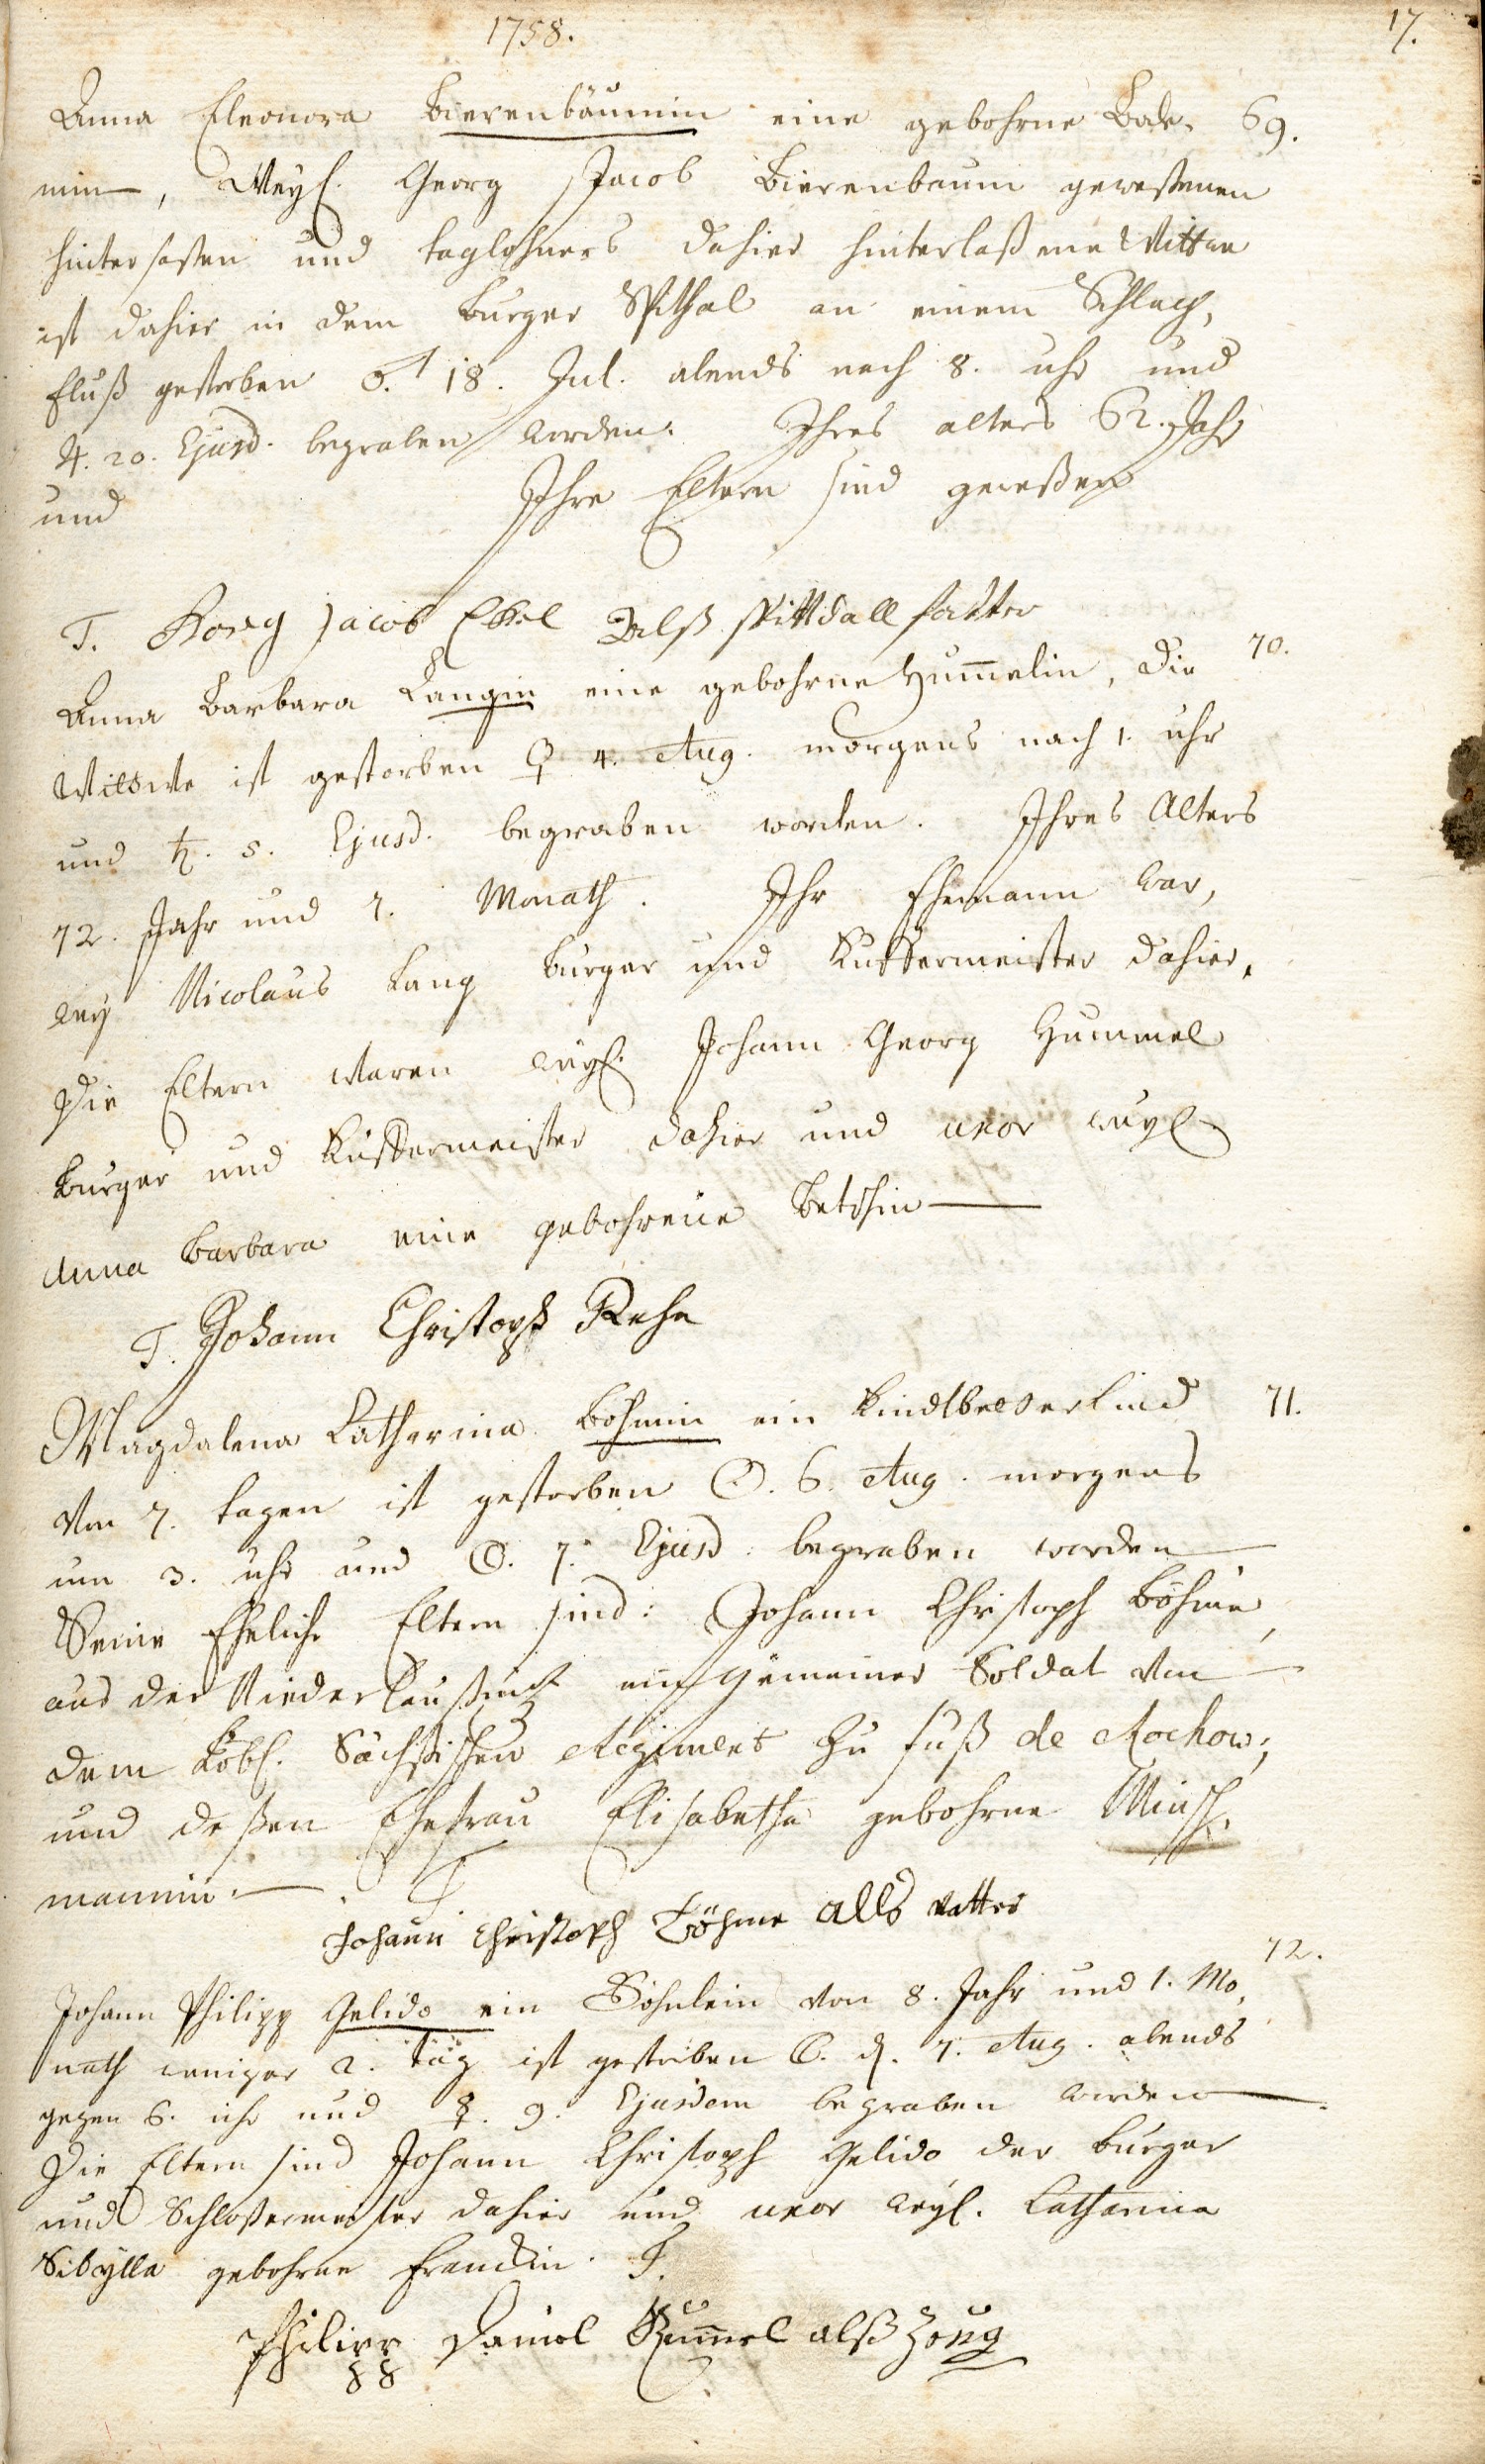 1758.
17.
Anna Eleonora Bierenbäumin eine gebohrne Bau- 69.
min, Weyl. Georg Jacob Bierenbaum geweßenen
hintersaßen und taglöhners dahier hinterlaßene Wittwe
ist dahier in dem burger Spithal an einem Schlag-
fluß gestorben ♂. 18. Jul. abends nach 8. uhr und
♃. 20. Ejusd. begraben worden. Ihres alters 62. Jahr
und Ihre Eltern sind geweßen
T. Jacob Ekel Alß spittdall fatter
Anna Barbara Langin eine gebohrne Hum̅elin, die 70.
Wittwe ist gestorben ♀ 4. Aug. morgens nach 1. uhr
und ♄. 5. Ejusd. begraben worden. Ihres Alters
72. Jahr und 7. Monath. Ihr Ehemann war,
weyl Nicolaus Lang burger und Kuffermeister dahier,
Die Eltern waren weyl. Johann Georg Hummel
burger und Küffermeister dahier und uxor weyl
Anna Barbara eine gebohrene
T. Johann Christoph Rehn
Magdalena Catharina Böhmin ein Kindbetterkind 71.
von 7. tagen ist gestorben ☉. 6. Aug. morgens
um 3. uhr und ☾. 7. Ejusd. begraben worden
Seine Eheliche Eltern sind: Johann Christoph Böhme,
aus der Niederlaußnitz ein gemeiner Soldat von
dem Löbl. Sächsischen Regiment zu fuß de Rochow;
und deßen Ehefrau Elisabetha gebohrne
mannin. T
Johann Christoph Böhme alls vatter
72.
Johann Philipp Gelido ein Söhnlein von 8. Jahr und 1. Mo-
nath weniger 2. täg ist gestorben ☾. d. 7. Aug. abends
gegen 6. uhr und ☿. 9. Ejusdem begraben worden.
Die Eltern sind Johann Christoph Gelido der burger
und Schloßermeister dahier und uxor weyl. Catharina
Sibylla gebohrne Franckin. T.
Philipp Daniel alß Zeug